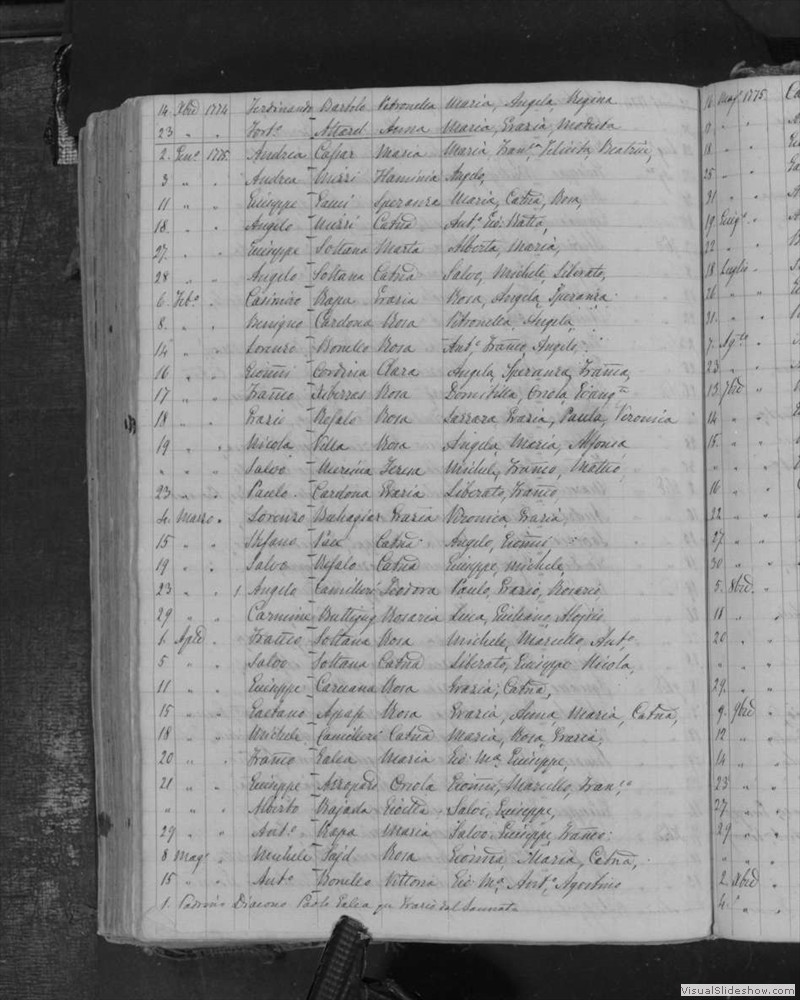 14. Xbre 1774 Ferdinando Bartolo Petronella Maria, Angela Regina
23 " " Fort.o Attard Anna Maria, Grazia, Modesta
2. Gen.o 1775. Andrea Caspar Maria Maria Fran.ca Felicita Beatrice,
3 " " Andrea Mizzi Flaminia Angelo,
11 " " Giuseppe Speranza Maria, Catna, Rosa,
18. " " Angelo Mizzi Catna Ant.o Gio: Batta,
27. " " Giuseppe Soltana Marta Alberta, Maria,
28 " " Angelo Soltana Catna Salvo, Michele, Liberato,
6. Feb.o " Casimiro Rapa Grazia Rosa, Angela, Speranza.
8. " " Benigno Cardona Rosa Petronella, Angela,
14 " " Lorenzo Bonello Rosa Ant.o Franco, Angelo,
16 " " Gionni Cordina Clara Angela, Speranza, Franca,
17 " " Franco Xiberras Rosa Domitilla, Onola,
18 " " Grazio Refalo Rosa Grazia, Paula, Veronica
19 " " Nicola Vella Rosa Angela, Maria, Alfonsa
" " " Salvo Mercieca Teresa Michele, Franco, Matteo,
23 " " Paulo Cardona Grazia Liberato, Franco
4. Marzo " Lorenzo Buhagiar Grazia Veronica, Grazia,
15 " " Stefano Pace Catna Angelo, Gionni
19 " " Salvo Refalo Catna Giuseppe, Michele,
23 " " 1 Angelo Camilleri Teodora Paulo, Grazio, Rosario
29 " " Carmine Buttigieg Rosaria Luca, Giuliano, Alojsio
1. Aple " Franco Soltana Rosa Michele, Marcello, Ant.o
5 " " Salvo Soltana Catna Liberato, Giuseppe Nicola,
11 " " Giuseppe Caruana Rosa Grazia, Catna,
15 " " Gaetano Agiap Rosa Grazia, Anna, Maria, Catna,
18 " " Michele Camilleri Catna Maria, Rosa, Grazia,
20 " " Franco Galea Maria Gio: Ma, Giuseppe,
21 " " Giuseppe Azzopardi Onola Gionni, Marcello, Fran.co
" " " Alberto Rajada Salvo, Giuseppe,
29 " " Ant.o Rapa Maria Salvo Giuseppe, Franco.
8 Mag.o " Michele Sajd Rosa Gionna Maria, Catna,
15 " " Ant.o Bonello Vittoria Gio: Ma. Ant.o, Agostino
1. Padrino Diacono Paolo Galea
16 Mag.o 1775.
17 " "
18 " "
25 " "
31 " "
19 Giug.o "
22 " "
18 Luglio "
26 " "
31. " "
7. Ag.to "
23 " "
13 7bre "
14 " "
15. " "
" " "
16 " "
22 " "
27 " "
30 " "
5. 8bre "
11 " "
20 " "
" " "
29. " "
9. 9bre "
12 " "
14 " "
23 " "
27. " "
29 " "
" " "
2. Xbre "
4. " "
VisualSlideshow.com